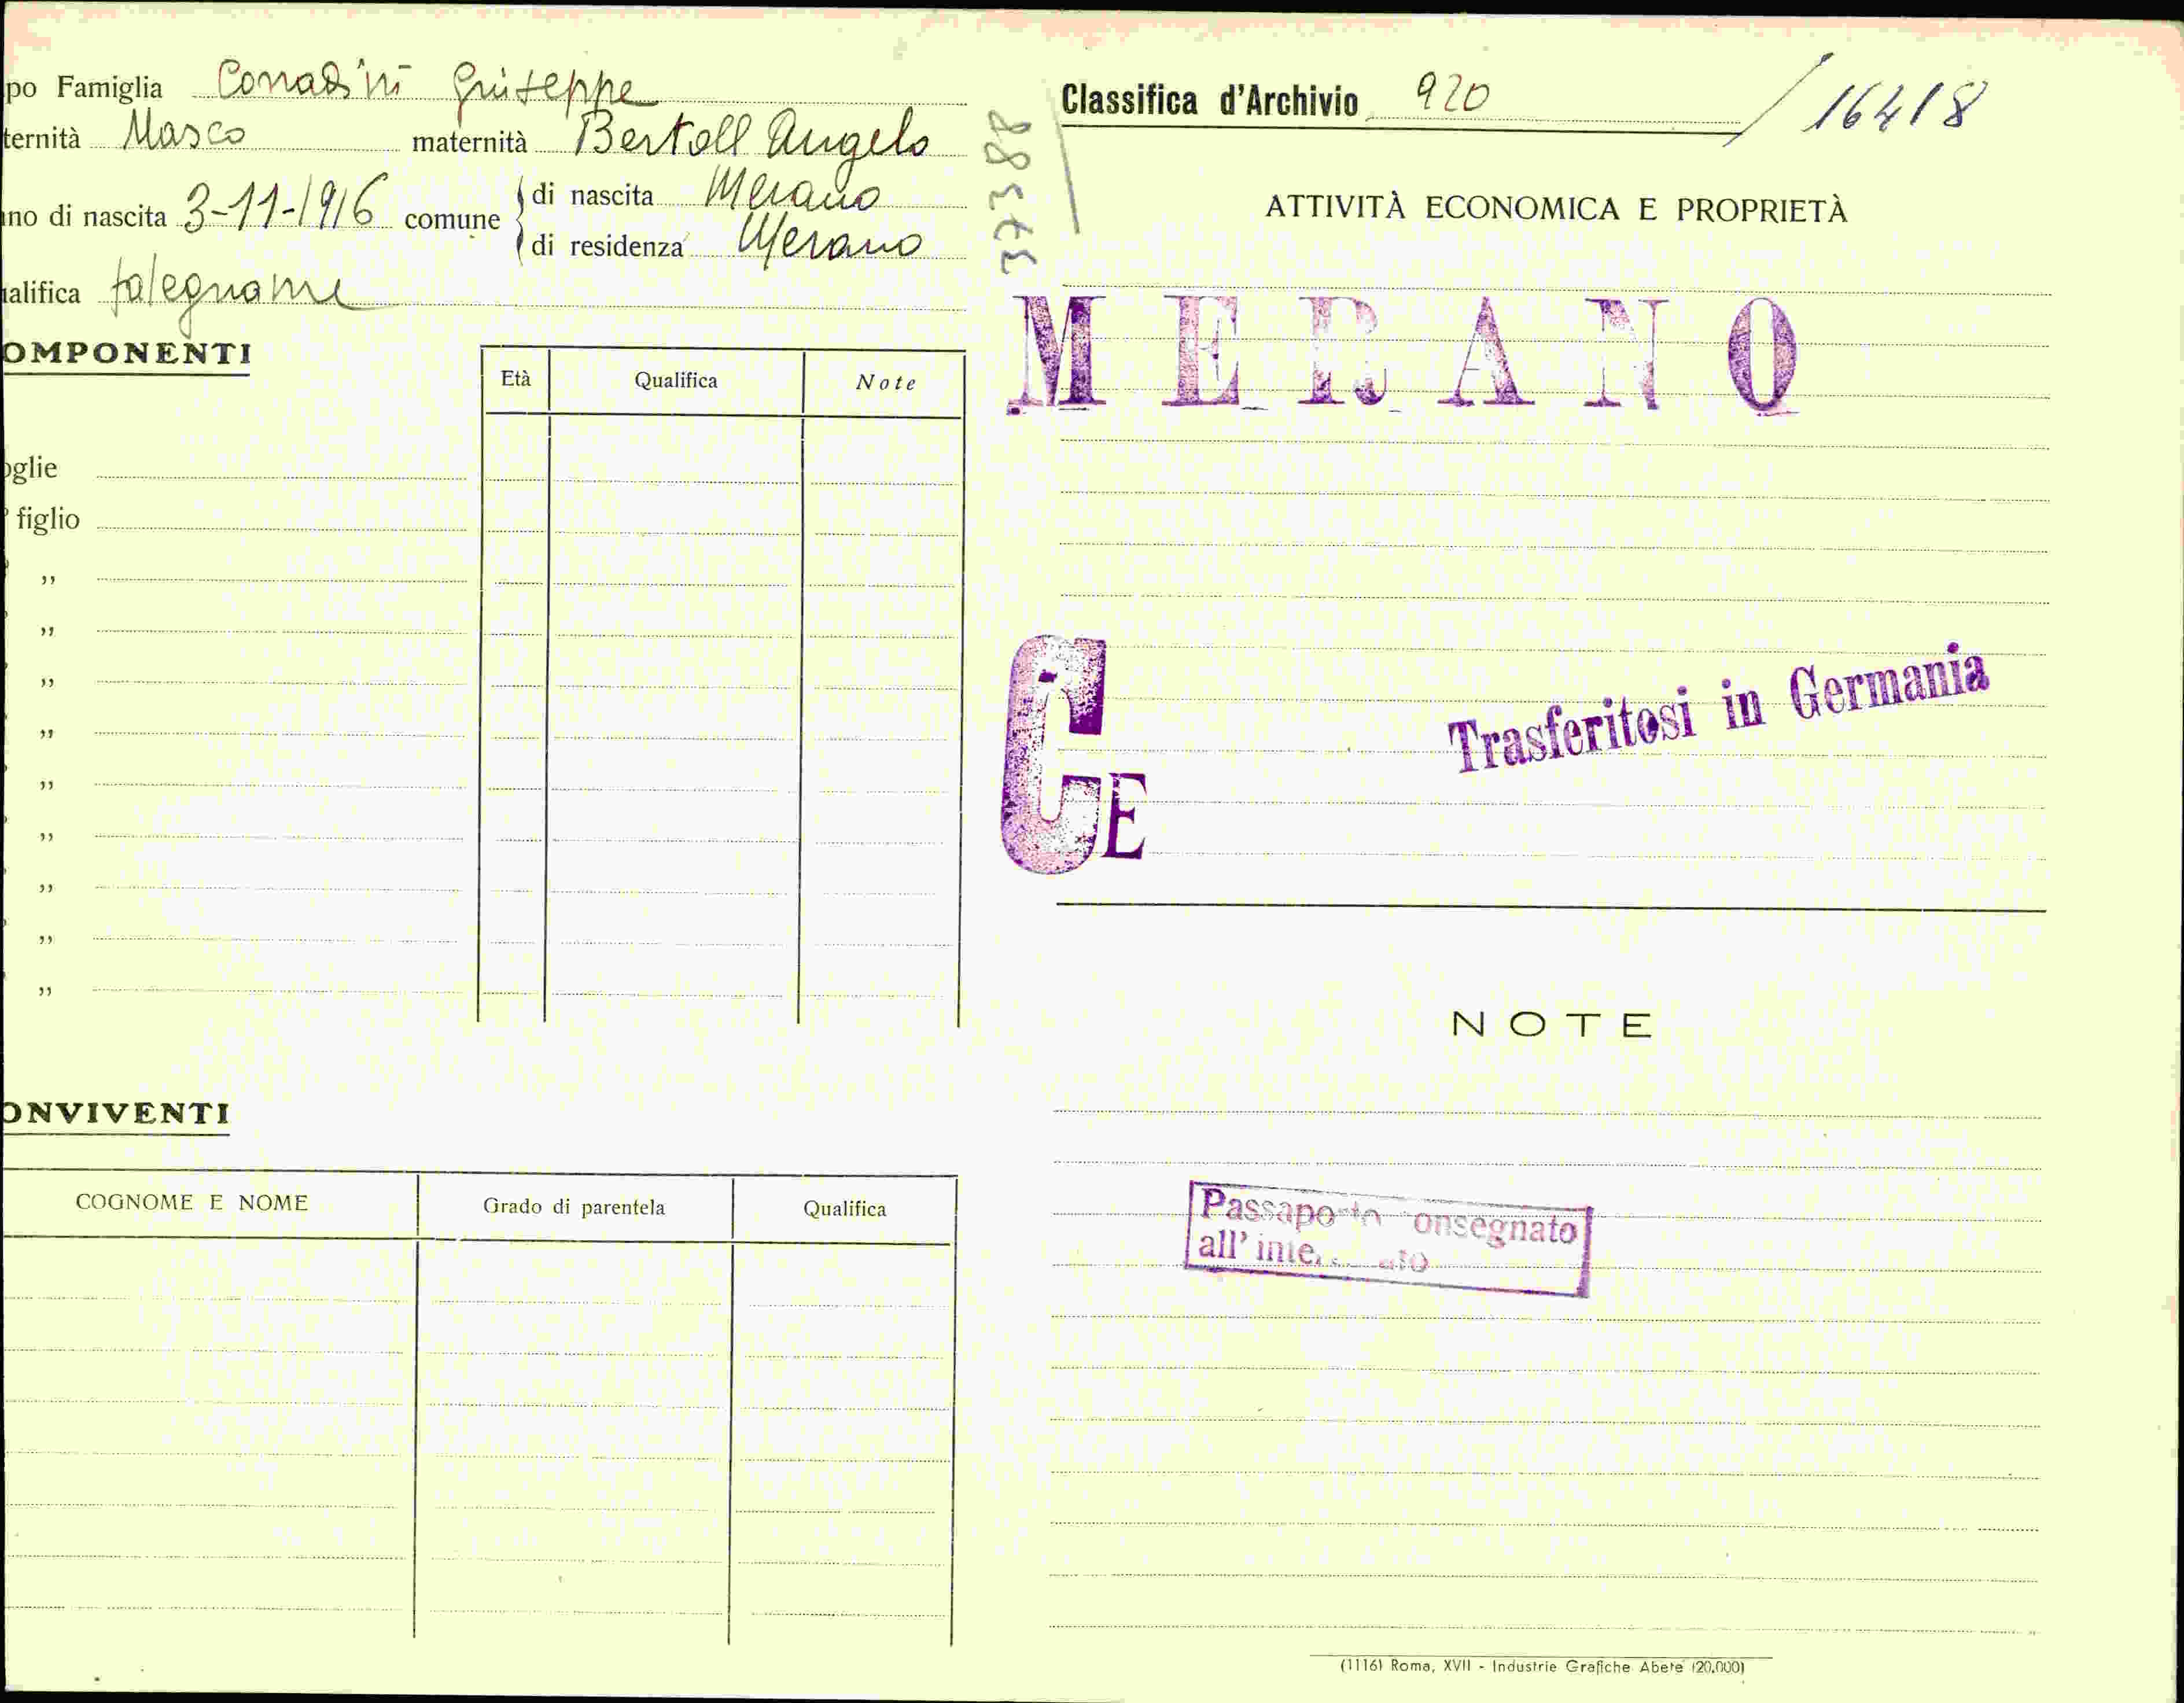 po Famiglia Corradini Giuseppe
ternità Masco maternità Bertoll Angela
no di nascita 3-11-1916 comune di nascita Merano
di residenza Merano
alifica falegname
OMPONENTI
Età Qualifica Note
oglie
figlio
"
"
"
"
"
"
"
"
"
ONVIVENTI
COGNOME E NOME Grado di parentela Qualifica
37388
Classifica d'Archivio 920 / 16418
ATTIVITÀ ECONOMICA E PROPRIETÀ
MERANO
Trasferitosi in Germania
GE
NOTE
Passaporto onsegnato
all'
(1116) Roma, XVII - Industrie Grafiche Abete (20.000)